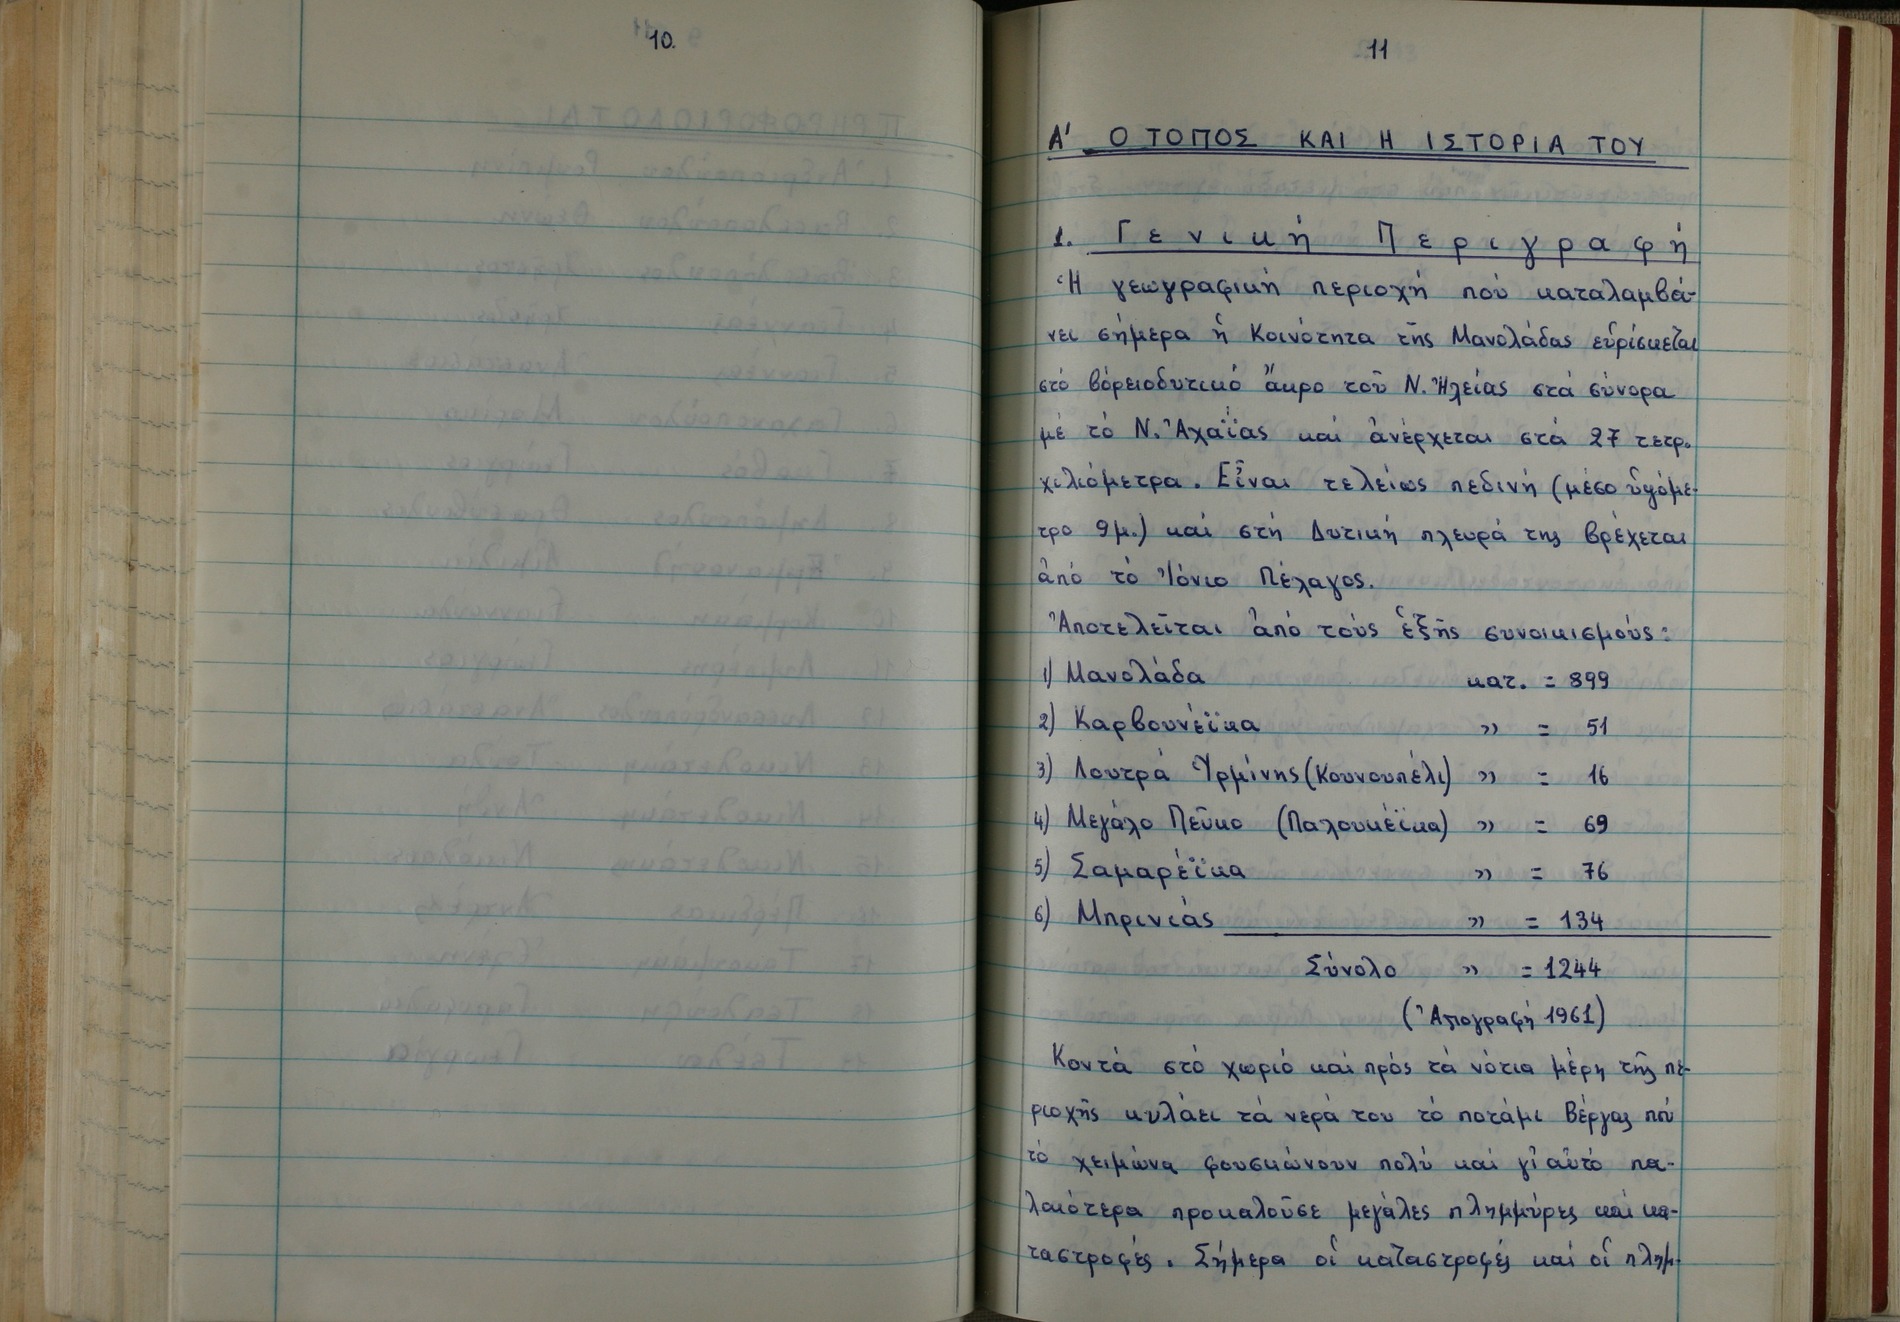 10.
11
Α' Ο ΤΟΠΟΣ ΚΑΙ Η ΙΣΤΟΡΙΑ ΤΟΥ
1. Γενική Περιγραφή
Ἡ γεωγραφική περιοχή πού καταλαμβά-
νει σήμερα ἡ Κοινότητα τῆς Μανολάδας εὑρίσκεται
στό βόρειοδυτικό ἄκρο τοῦ Ν. Ἠλείας στά σύνορα
μέ τό Ν. Ἀχαΐας καί ἀνέρχεται στά 27 τετρ.
χιλιόμετρα. Εἶναι τελείως πεδινή (μέσο ὑψόμε-
τρο 9μ.) καί στή Δυτική πλευρά της βρέχεται
ἀπό τό Ἰόνιο Πέλαγος.
Ἀποτελεῖται ἀπό τούς ἑξῆς συνοικισμούς:
1) Μανολάδα κατ. = 899
2) Καρβουνέϊκα " = 51
3) Λουτρά Ὑρμίνης (Κουνουπέλι) " = 16
4) Μεγάλο Πεῦκο (Παλουκέϊκα) " = 69
5) Σαμαρέϊκα " = 76
6) Μπρινιάς " = 134
Σύνολο " = 1244
(Ἀπογραφή 1961)
Κοντά στό χωριό καί πρός τά νότια μέρη τῆς πε-
ριοχῆς κυλάει τά νερά του τό ποτάμι Βέργας πού
τό χειμώνα φουσκώνουν πολύ καί γι' αὐτό πα-
λαιότερα προκαλοῦσε μεγάλες πλημμύρες καί κα-
ταστροφές. Σήμερα οἱ καταστροφές καί οἱ πλημ-